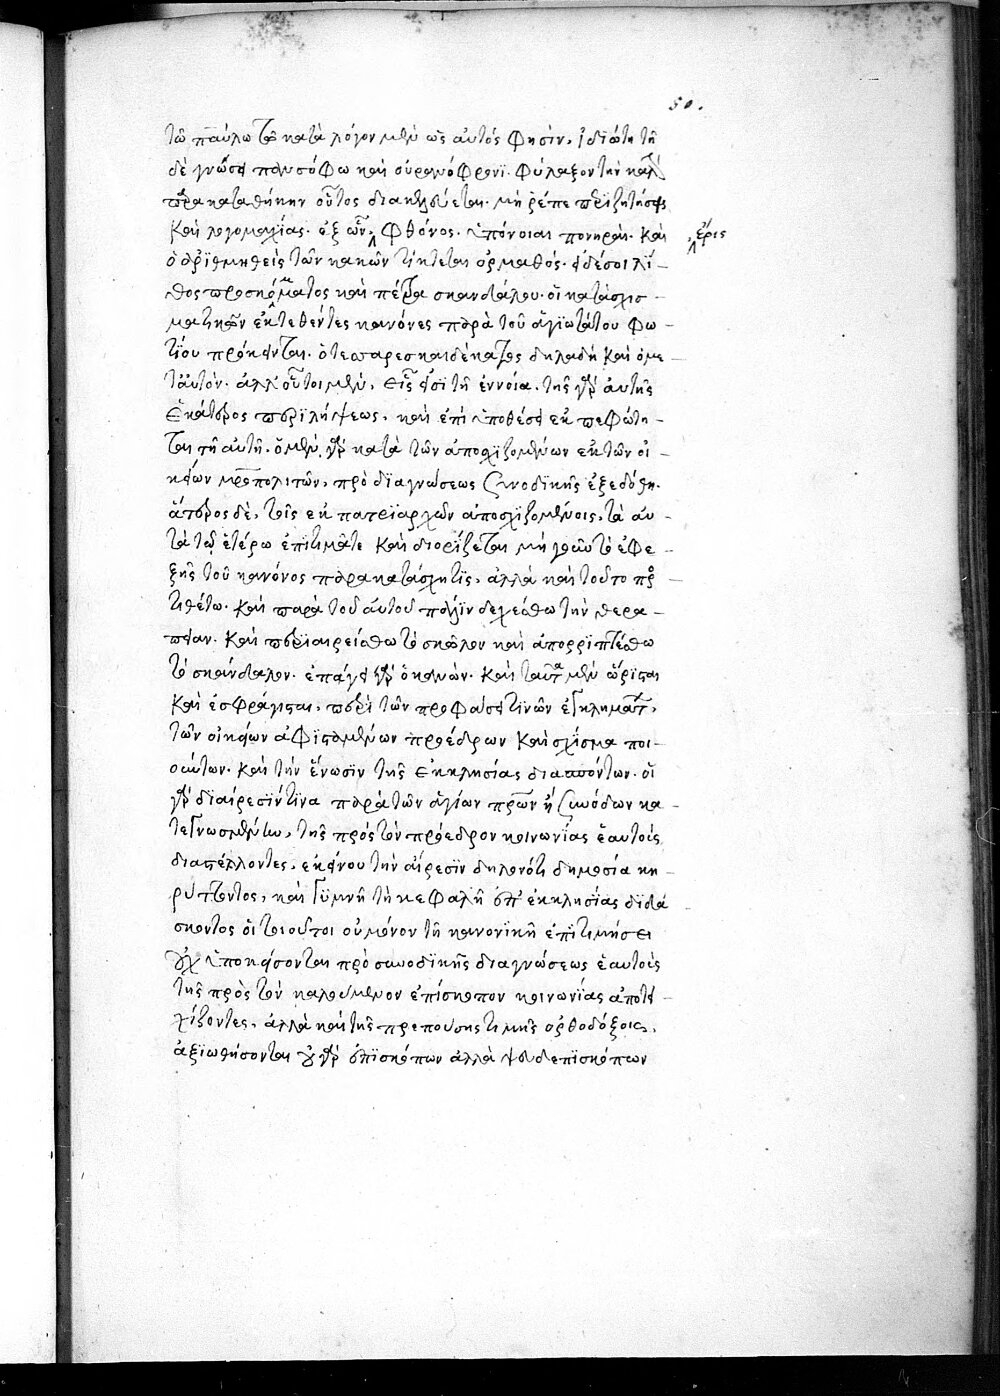 50.
τῶ παύλω τῶ κατὰ λόγον μὲν ὡς αὐτός φησὶν, ἰδιώτη τῆ
δὲ γνώσει πανσόφω καὶ οὐρανόφρονι. φύλαξον τὴν καλὴν
παρακαταθήκην οὗτος διακελεύεται. μὴ ῥέπε πρὸς ζητήσεις
καὶ λογομαχίας. ἐξ ὧν φθόνος. ὑπόνοιαι πονηραί. καὶ
ἔρις
ὁ ἀριθμηθεὶς τῶν κακῶν τίκτεται ὁρμαθός. εἰ δέ σοι λί-
θος προσκόμματος καὶ πέτρα σκανδάλου. οἱ κατὰ σχισ-
ματικῶν ἐκτεθέντες κανόνες παρὰ τοῦ ἁγιωτάτου φω-
τίου πρόκεινται. ὁ τεσσαρεσκαιδέκατος δηλαδὴ καὶ ὁ με-
τ' αὐτόν. ἀλλ' οὗτοι μὲν, εἷς εἰσὶ τῆ ἐννοία. τῆς γὰρ αὐτῆς
ἑκάτερος περιλήψεως, καὶ ἐπὶ ὑποθέσει ἐκπεφώνη-
ται τῆ αὐτῆ. ὁ μὲν γὰρ κατὰ τῶν ἀποσχιζομένων ἐκ τῶν οἰ-
κείων μητροπολιτῶν, πρὸ διαγνώσεως συνοδικῆς ἐξεδόθη.
ἅτερος δὲ, τοῖς ἐκ πατριαρχῶν ἀποσχιζομένοις, τὰ αὐ-
τὰ τῶ ἑτέρω ἐπιτιμᾶται καὶ διορίζεται μὴ γοῦν τὸ ἐφε-
ξῆς τοῦ κανόνος παρακατάσχη τις, ἀλλὰ καὶ τοῦτο προσ-
τιθέτω. καὶ παρὰ τοῦ αὐτοῦ πάλιν δεχέσθω τὴν θερα-
πείαν. καὶ περιαιρείσθω τὸ σκῶλον καὶ ἀπορριπτέσθω
τὸ σκάνδαλον. ἐπάγει γὰρ ὁ κανών. καὶ ταῦτα μὲν ὥρισται
καὶ ἐσφράγισται, περὶ τῶν προφάσει τινῶν ἐγκλημάτων,
τῶν οἰκείων ἀφισταμένων προέδρων καὶ σχίσμα ποι-
ούντων. καὶ τὴν ἕνωσιν τῆς ἐκκλησίας διασπώντων. οἱ
γὰρ δι' αἵρεσίν τινα παρὰ τῶν ἁγίων πατέρων ἢ συνόδων κα-
τεγνωσμένην, τῆς πρὸς τὸν πρόεδρον κοινωνίας ἑαυτοὺς
διαστέλλοντες, ἐκείνου τὴν αἵρεσιν δηλονότι δημοσία κη-
ρύττοντος, καὶ γυμνῆ τῆ κεφαλῆ ἐπ' ἐκκλησίας διδά-
σκοντος οἱ τοιοῦτοι οὐ μόνον τῆ κανονικῆ ἐπιτιμήσει
οὐχ ὑποκείσονται πρὸ συνοδικῆς διαγνώσεως ἑαυτοὺς
τῆς πρὸς τὸν καλούμενον ἐπίσκοπον κοινωνίας ἀποτει-
χίζοντες, ἀλλὰ καὶ τῆς πρεπούσης τιμῆς ὀρθοδόξοις,
ἀξιωθήσονται οὐ γὰρ ἐπισκόπων ἀλλὰ ψευδεπισκόπων